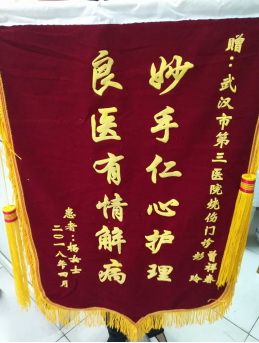 赠：武汉市第三医院烧伤门诊曾祥森
彭玲
妙手仁心护理
良医有情解病
患者：杨女士
二〇一八年四月